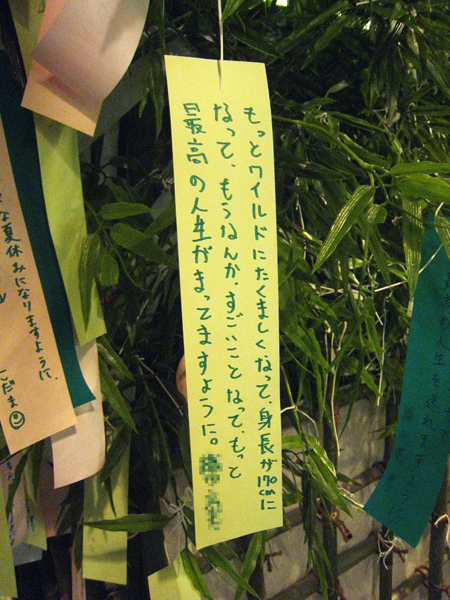 もっとワイルドにたくましくなって、身長が170cmに
なって、もうなんか、すごいことなって、もっと
最高の人生がまってますように。
な夏休みになりますように、
こだま
人生を送れますように